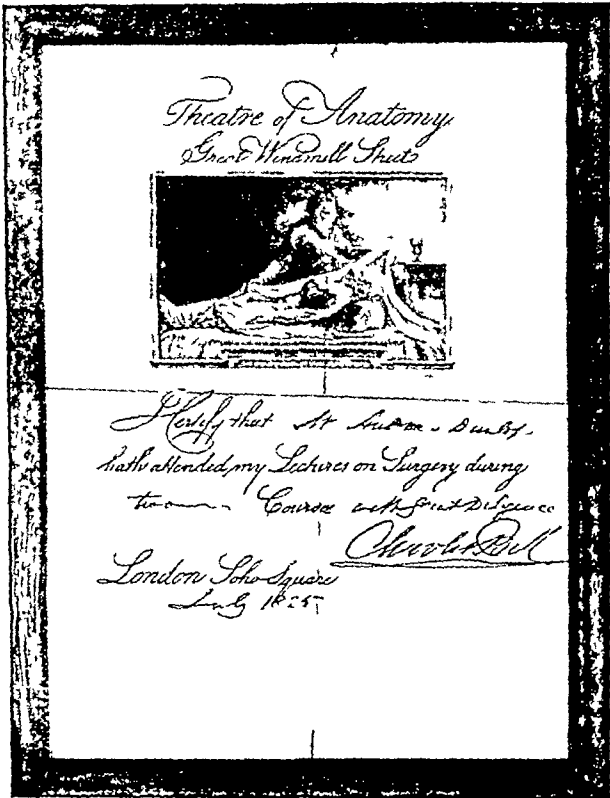 Theatre of Anatomy
Great Windmill Street
I Certify that Mr Dunlop
hath attended my Lectures on Surgery during
Courses with great Diligence
Charles Bell
London Soho Square
July 1825